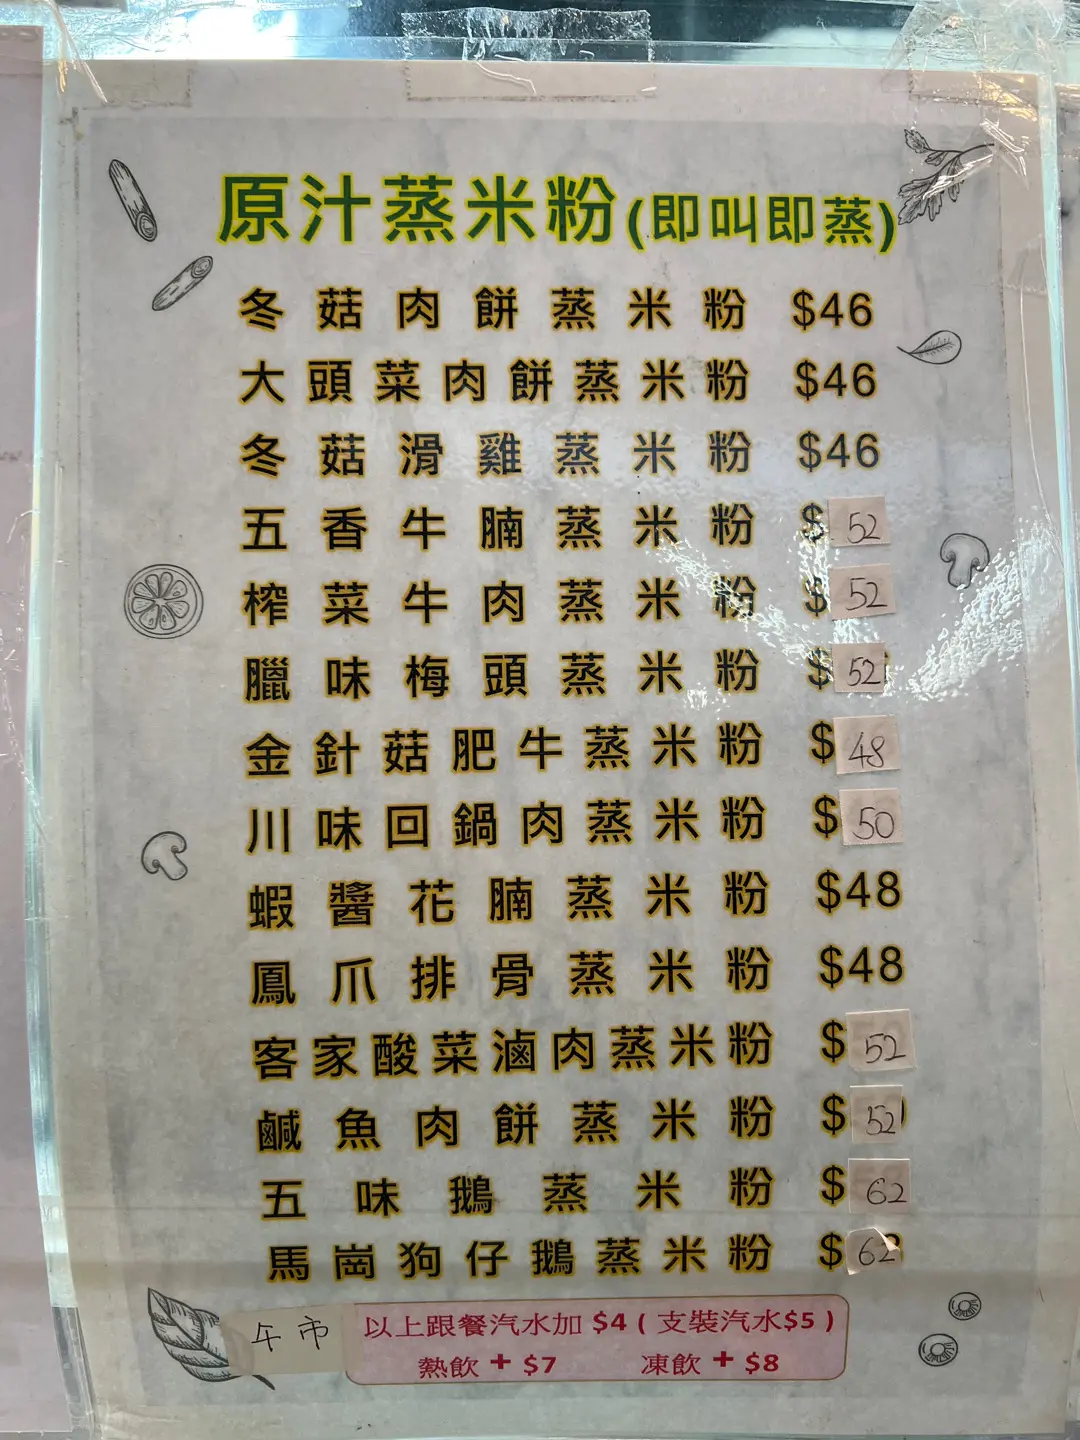 原汁蒸米粉(即叫即蒸)
冬菇肉餅蒸米粉 $46
大頭菜肉餅蒸米粉 $46
冬菇滑雞蒸米粉 $46
五香牛腩蒸米粉 $52
榨菜牛肉蒸米粉 $52
臘味梅頭蒸米粉 $52
金針菇肥牛蒸米粉 $48
川味回鍋肉蒸米粉 $50
蝦醬花腩蒸米粉 $48
鳳爪排骨蒸米粉 $48
客家酸菜滷肉蒸米粉 $52
鹹魚肉餅蒸米粉 $52
五味鵝蒸米粉 $62
馬崗狗仔鵝蒸米粉 $62
午市 以上跟餐汽水加 $4 ( 支裝汽水$5 )
熱飲 + $7 凍飲 + $8